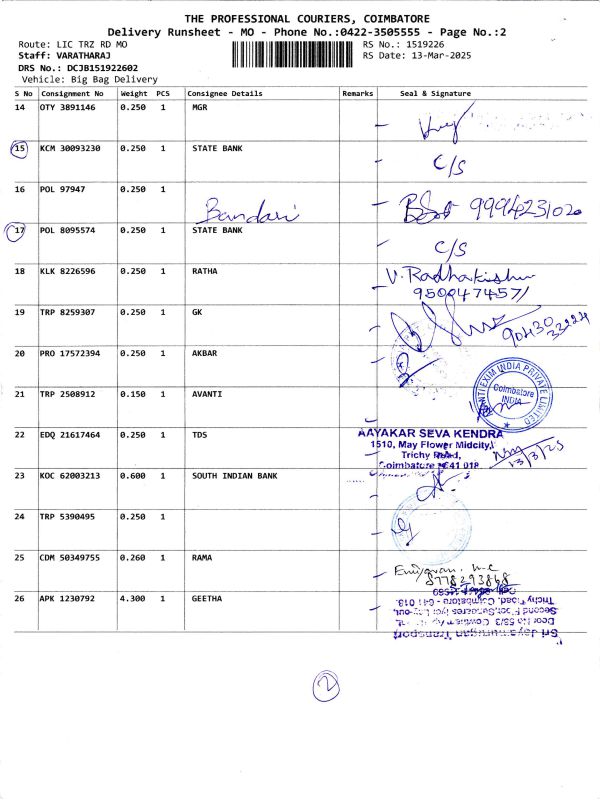 THE PROFESSIONAL COURIERS, COIMBATORE
Delivery Runsheet - MO - Phone No.:0422-3505555 - Page No.:2
Route: LIC TRZ RD MO
RS No.: 1519226
Staff: VARATHARAJ
RS Date: 13-Mar-2025
DRS No.: DCJB151922602
Vehicle: Big Bag Delivery
S No Consignment No Weight PCS Consignee Details Remarks Seal & Signature
14 OTY 3891146 0.250 1 MGR
15 KCM 30093230 0.250 1 STATE BANK
C/S
16 POL 97947 0.250 1
Bandari
9994231020
17 POL 8095574 0.250 1 STATE BANK
C/S
18 KLK 8226596 0.250 1 RATHA
V. Radhakishn
9500474571
19 TRP 8259307 0.250 1 GK
90430
33224
20 PRO 17572394 0.250 1 AKBAR
21 TRP 2508912 0.150 1 AVANTI
AVANTI EXIM INDIA PRIVATE LIMITED
Coimbatore
INDIA
22 EDQ 21617464 0.250 1 TDS
AAYAKAR SEVA KENDRA
1510, May Flower Midcity,
Trichy Road,
Coimbatore - 641 018
13/3/25
23 KOC 62003213 0.600 1 SOUTH INDIAN BANK
24 TRP 5390495 0.250 1
25 CDM 50349755 0.260 1 RAMA
8778293868
26 APK 1230792 4.300 1 GEETHA
Sri Jayamurugan Transport
Trichy Road, Coimbatore - 641 018.
2